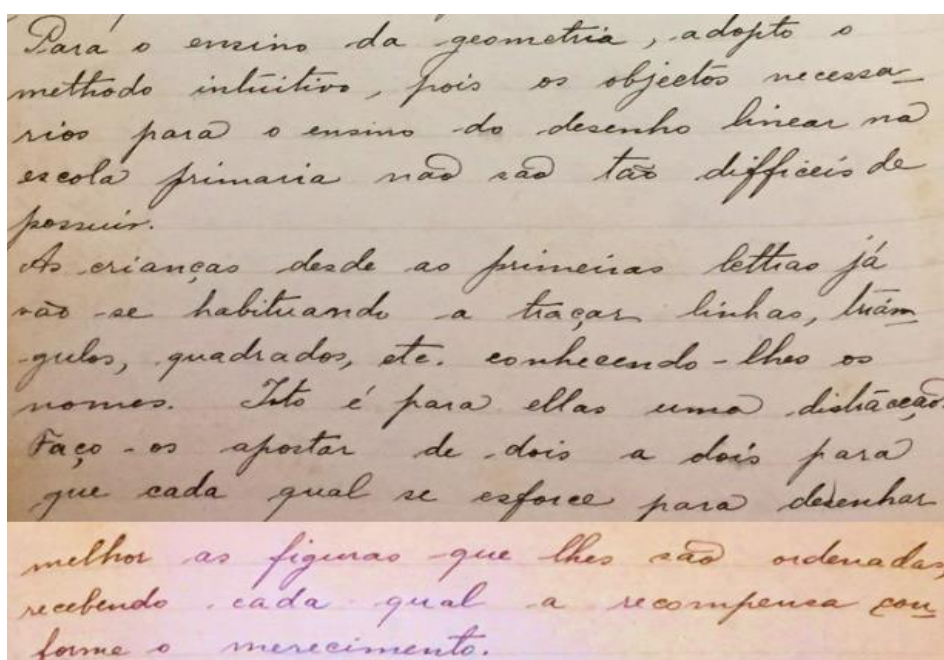 Para o ensino da geometria, adopto o
methodo intuitivo, pois os objectos necessa-
rios para o ensino do desenho linear na
escola primaria não são tão difficeis de
possuir.
As crianças desde as primeiras lettras já
vão-se habituando a traçar linhas, trián-
gulos, quadrados, etc. conhecendo-lhes os
nomes. Isto é para ellas uma distracção.
Faço-os apostar de dois a dois para
que cada qual se esforce para desenhar
melhor as figuras que lhes são ordenadas,
recebendo cada qual a recompensa con-
forme o merecimento.